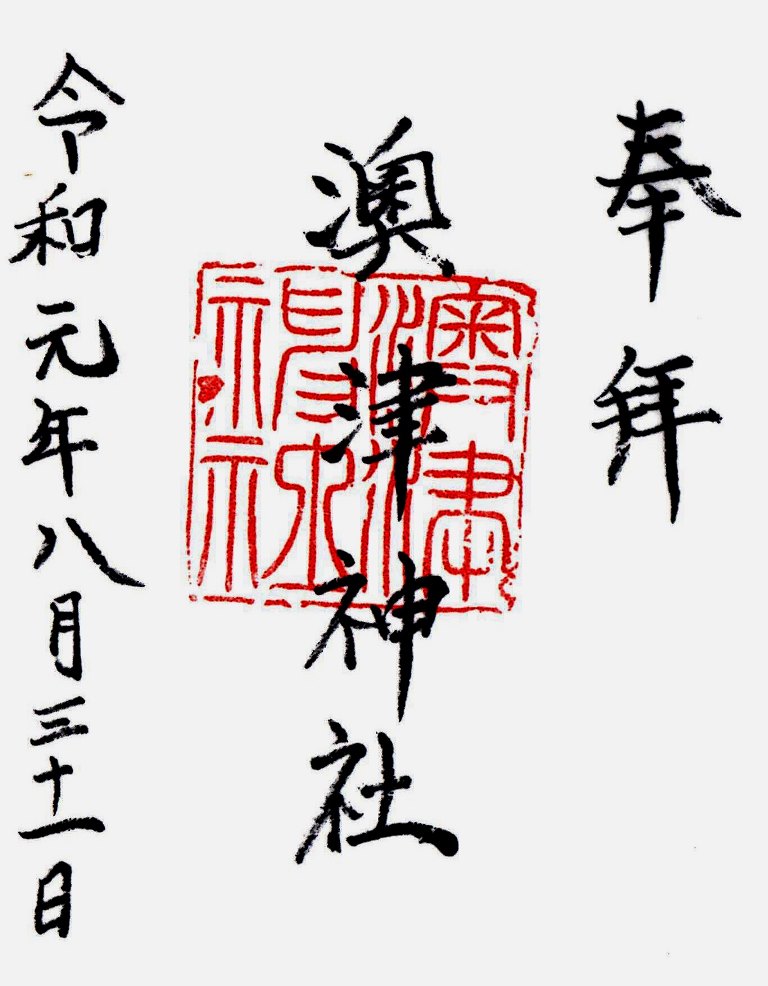 奉拝
澳津神社
澳津神社
令和元年八月三十一日